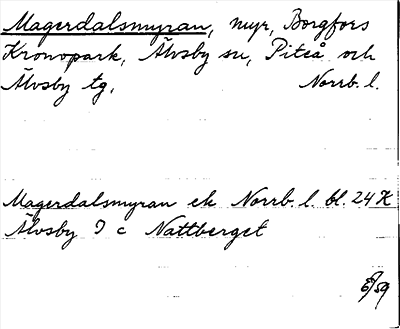 Magerdalsmyran, myr, Borgfors
Kronopark, Älvsby sn, Piteå och
Älvsby tg, Norrb. l.
Magerdalsmyran ek Norrb. l. bl. 24 K
Älvsby 9 c Nattberget
/59